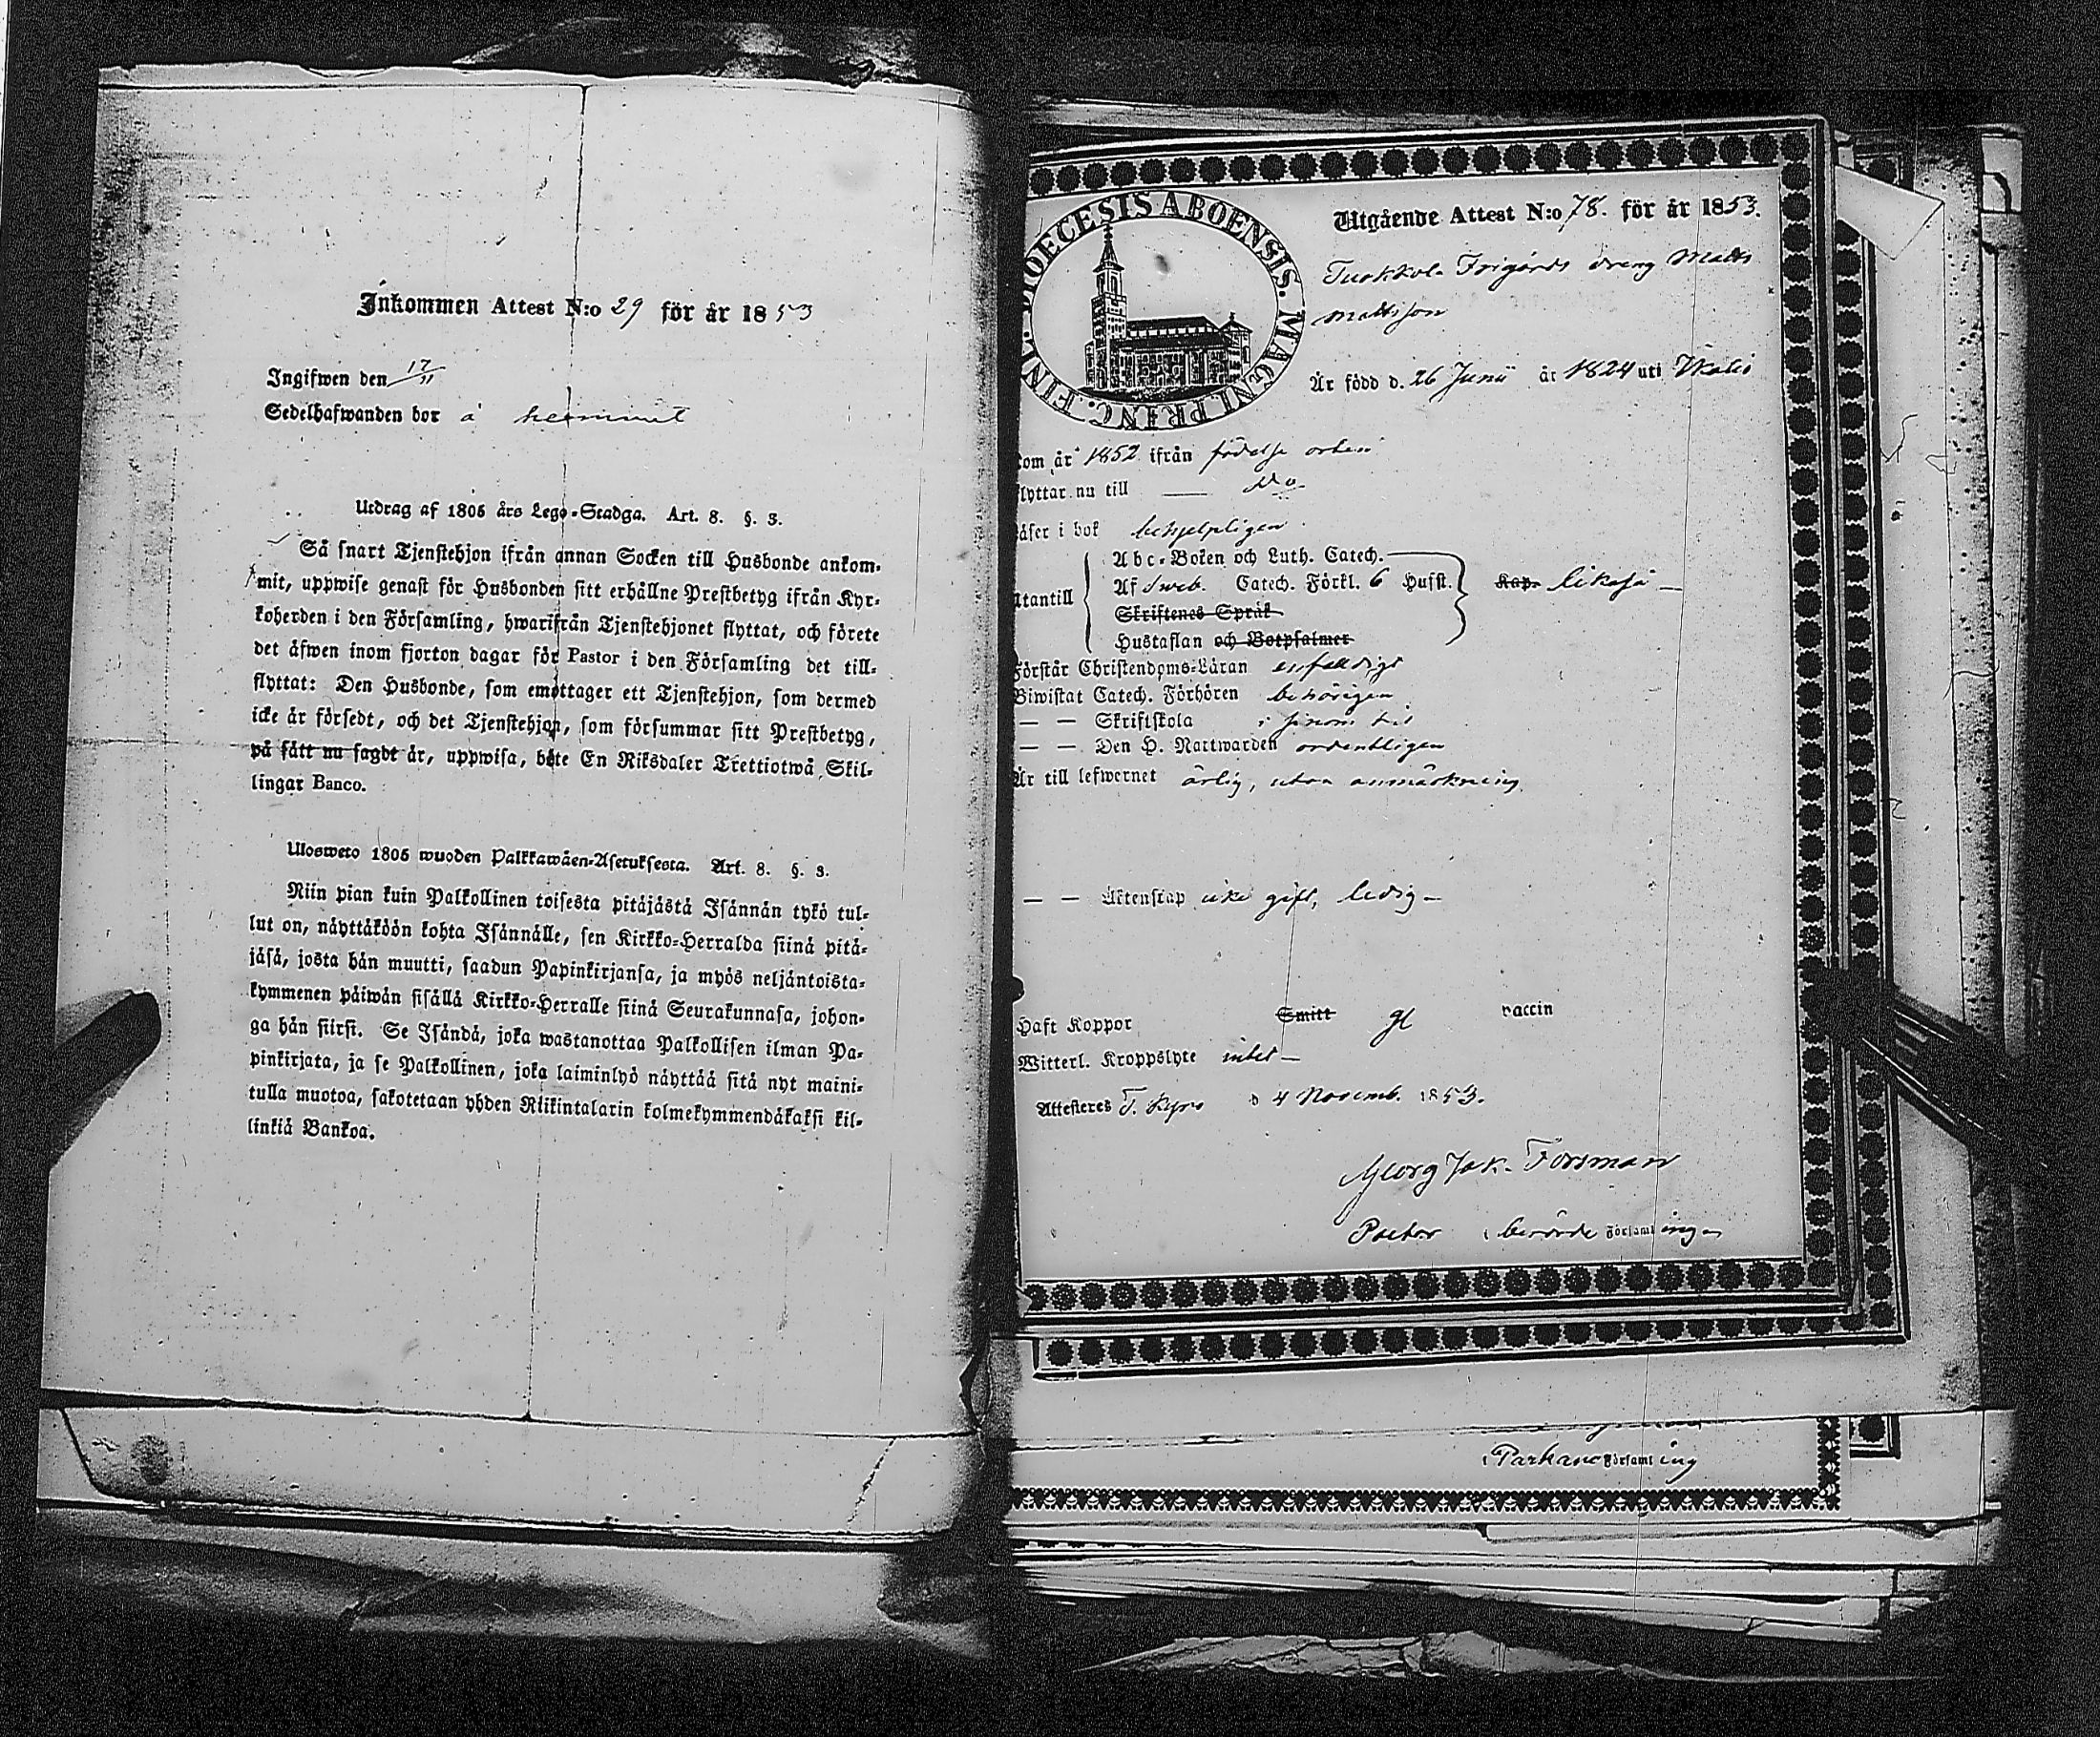 Inkommen Attest N:o 29 för år 1853
Ingifwen den 17/11
Sedelhafwanden bor å hemmet
Utdrag af 1805 års Lego-Stadga. Art. 8. §. 3.
Så snart Tjenstehjon ifrån annan Socken till Husbonde ankom-
mit, uppwise genast för Husbonden sitt erhållne Prestbetyg ifrån Kyr-
koherden i den Församling, hwarifrån Tjenstehjonet flyttat, och förete
det äfwen inom fjorton dagar för Pastor i den Församling det till-
flyttat: Den Husbonde, som emottager ett Tjenstehjon, som dermed
icke är försedt, och det Tjenstehjon, som försummar sitt Prestbetyg,
på sått nu sagdt är, uppwisa, böte En Riksdaler Trettiotwå Skil-
lingar Banco.
Ulosweto 1805 wuoden Palkkawäen-Asetuksesta. Art. 8. §. 3.
Niin pian kuin Palkollinen toisesta pitäjästä Isännän tykö tul-
lut on, näyttäköön kohta Isännälle, sen Kirkko-Herralda siinä pitä-
jäsä, josta hän muutti, saadun Papinkirjansa, ja myös neljäntoista-
kymmenen päiwän sisällä Kirkko-Herralle siinä Seurakunnasa, johon-
ga hän siirsi. Se Isändä, joka wastanottaa Palkollisen ilman Pa-
pinkirjata, ja se Palkollinen, joka laiminlyö näyttää sitä nyt maini-
tulla muotoa, sakotetaan yhden Riikintalarin kolmekymmendäkaksi kil-
linkiä Bankoa.
DIOECESIS ABOENSIS. MAGNI. PRINC. FINL.
Utgående Attest N:o 78. för år 1853.
Frigårds dreng Matts
Mattsson
Är född d. 26 Junii år 1824 uti Ikalis
kom år 1852 ifrån födelse orten
flyttar nu till — do
Läser i bok behjelpligen.
Abc-Boken och Luth. Catech.
Utantill Af Sveb. Catech. Förkl. 6 Hufst. Kap. likaså —
Skriftenes Språk
Hustaflan och Botpsalmer
Förstår Christendoms-Läran enfaldigt
Biwistat Catech. Förhören behörigen
— — Skriftskola i sinom tid
— — Den H. Nattwarden ordentligen
Är till lefwernet ärlig, utan anmärkning
— — Äktenskap icke gift, ledig —
Haft Koppor Smitt vaccin
Witterl. Kroppslyte intet —
Attesteres T. Kyro d 4 Novemb. 1853.
Georg Jak. Forsman
Pastor i berörde Församlingen
i Parkano Församling